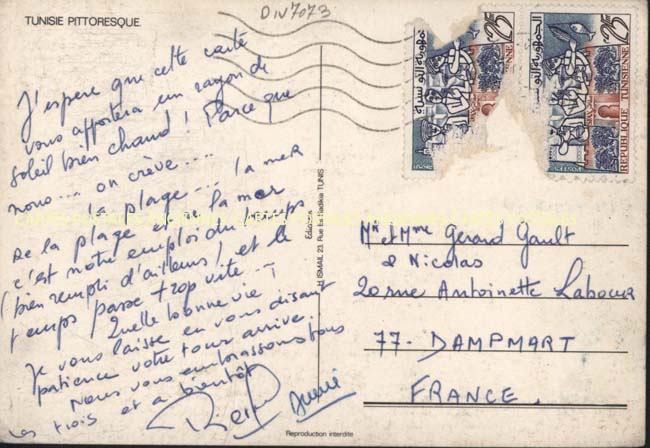 TUNISIE PITTORESQUE.
DIV7073
J'espère que cette carte
vous apportera un rayon de
soleil bien chaud ! Parce que
nous... on crève...
De la plage... la mer
De la plage et la mer
c'est notre emploi du temps
(bien rempli d'ailleurs) et le
temps passe trop vite...
Quelle bonne vie !
Je vous laisse en vous disant
patience votre tour arrive.
Nous vous embrassons tous
les trois et à bientôt
Annie
Reproduction interdite
Edition
H ISMAIL 23, Rue Es Sadikia TUNIS
25
REPUBLIQUE TUNISIENNE
الجمهورية التونسية
25
REPUBLIQUE TUNISIENNE
الجمهورية التونسية
Mr et Mme Gerard Gault
& Nicolas
20 rue Antoinette Labour
77- DAMPMART
FRANCE.